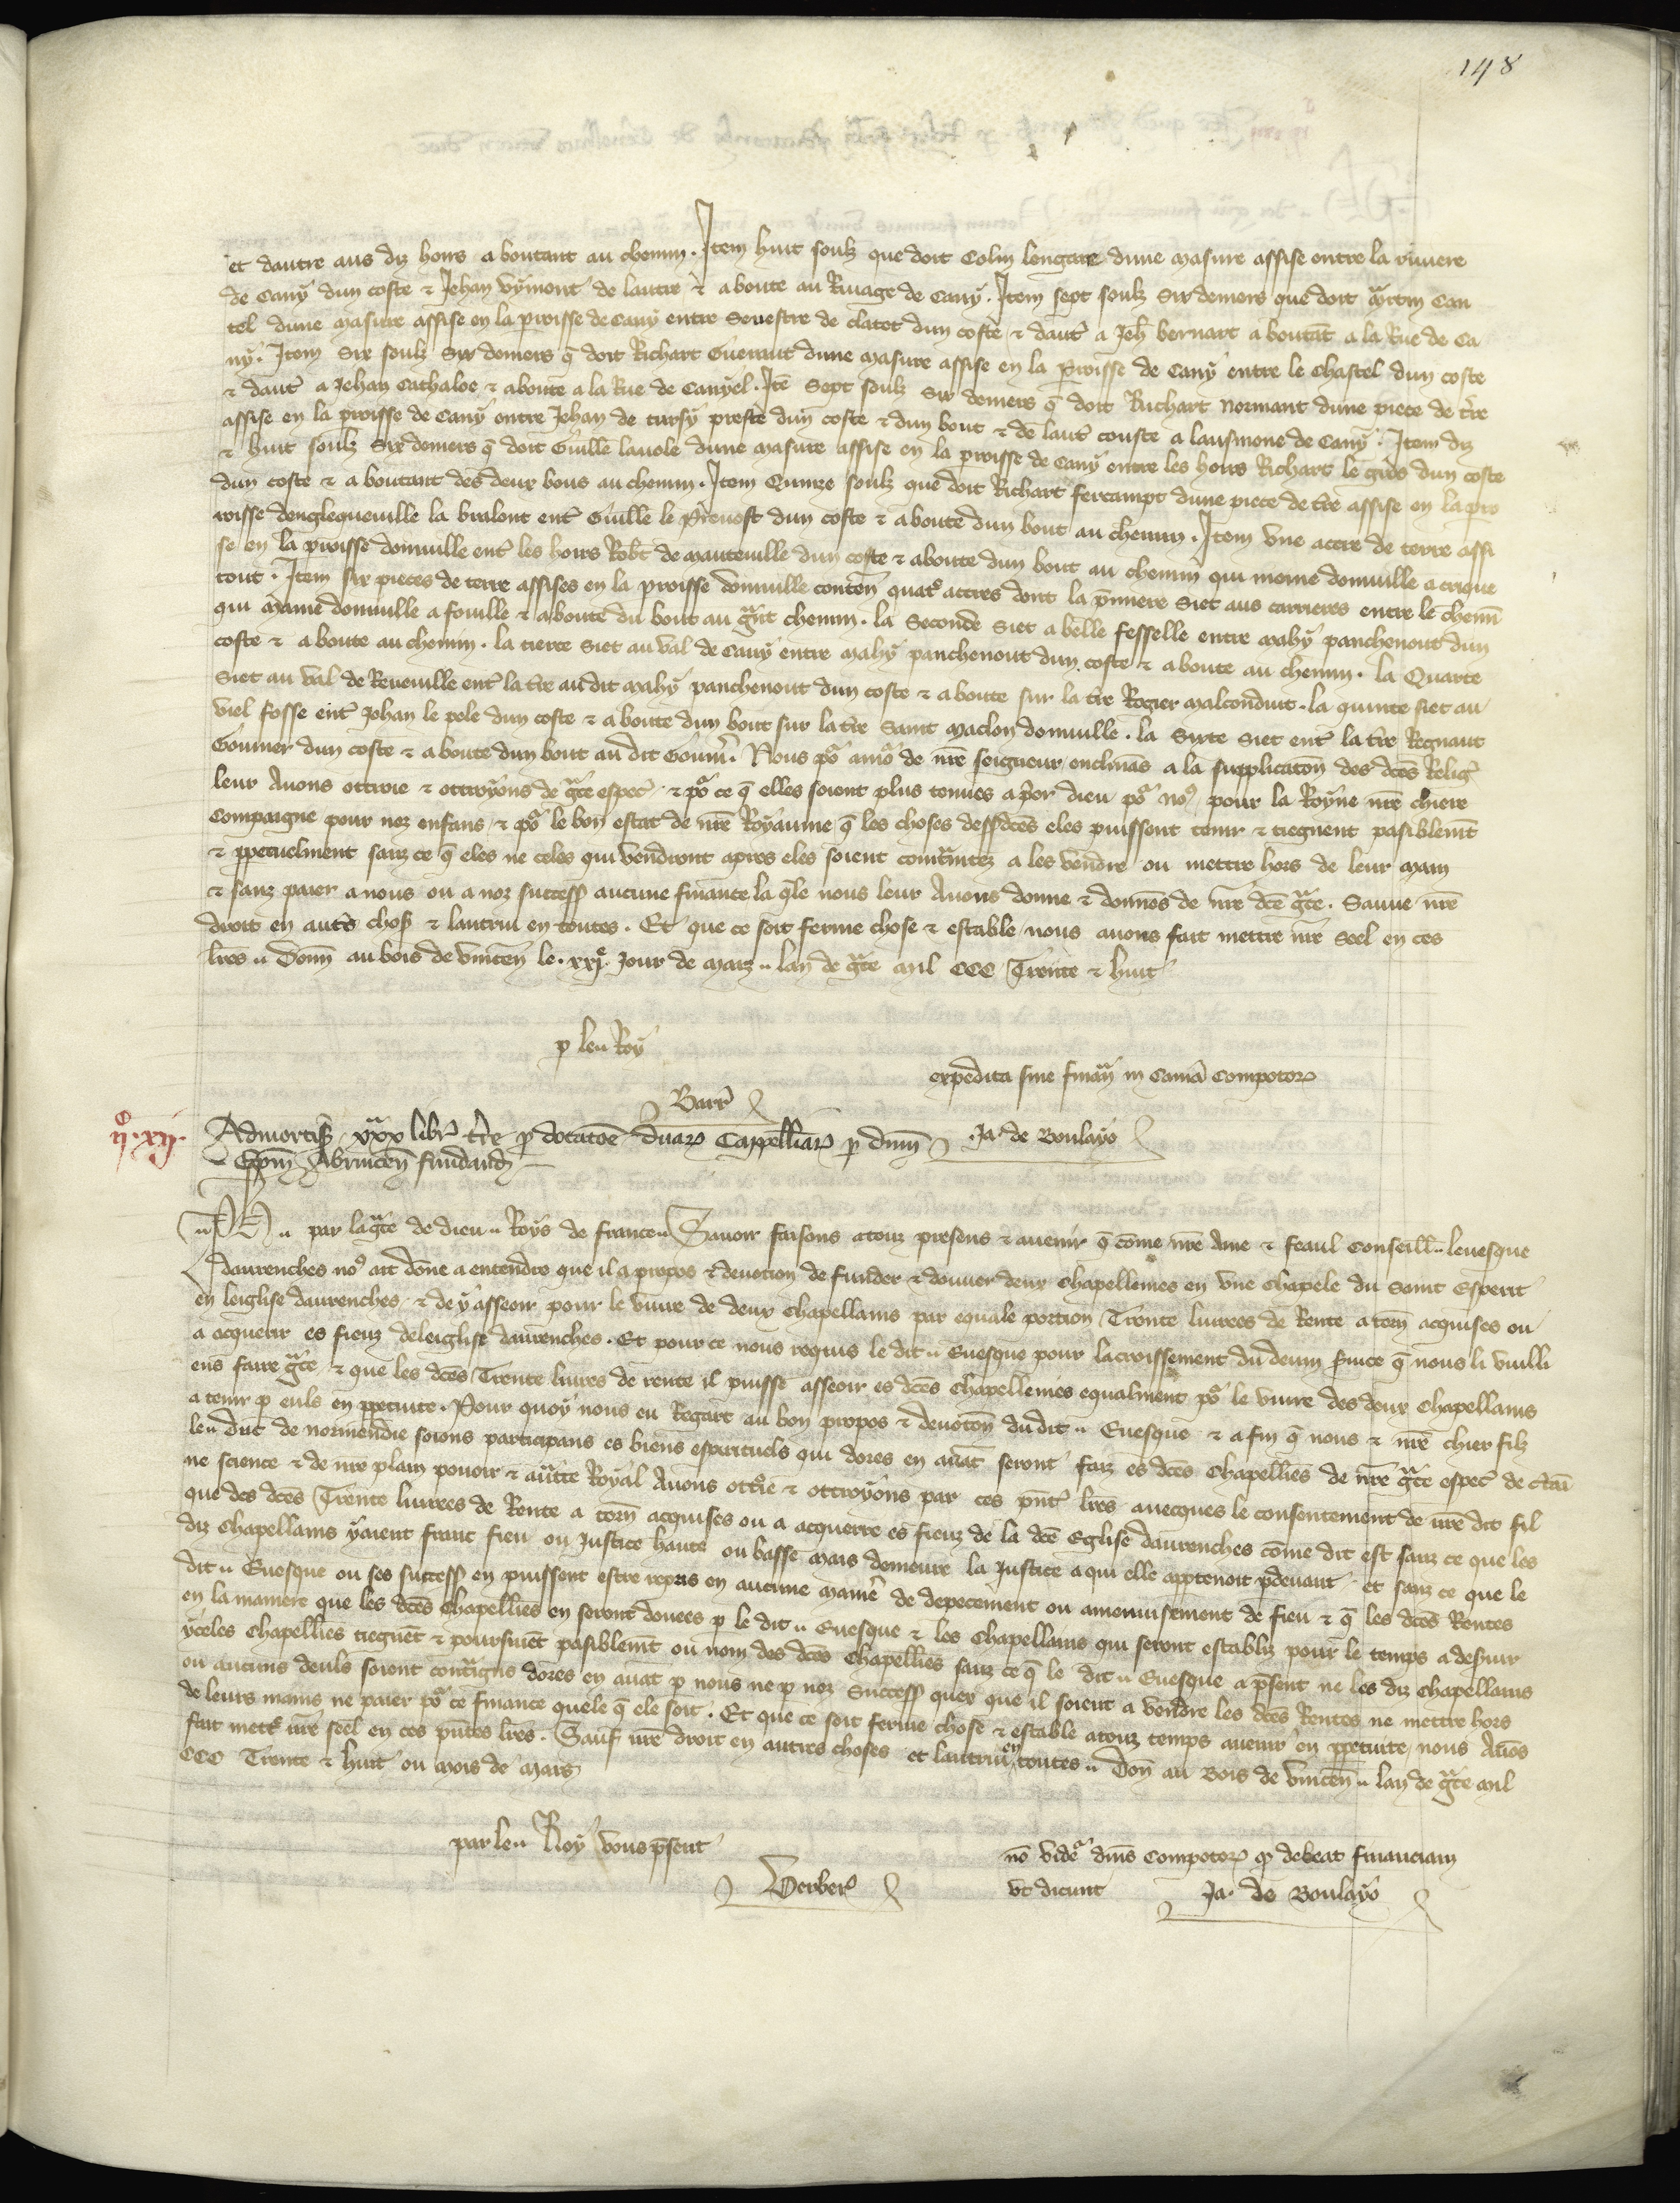 148
et dautre aus diz hoirs aboutant au chemin. Item huit soulz que doit Colin longate dune masure assise entre la riviere
de Cany dun coste & Jehan Vymont de lautre & aboute au Rivage de Cany. Item sept soulz Six deniers que doit Can
tel dune masure assise en la proisse de Cany entre Sevestre de clatot dun coste & daut a Jeh bernart aboutat a la Rue de Ca
ny. Item Six soulz Six deniers q doit Richart Gueraut dune masure assise en la Proisse de Cany entre le Chastel dun coste
& daut a Jehan Cathaloe & aboute a la Rue de Canyel. Ite Sept soulz Six deniers q doit Richart Normant dune piece de tre
assise en la proisse de Cany entre Jehan de tursy prestre dun coste & dun bout & de laut couste a lausmone de Cany. Item diz
& huit soulz Six deniers q doit Guille lavole dune masure assise en la proisse de Cany entre les hoirs Richart le gros dun coste
dun coste & aboutant des deux bous au chemin. Item Quinze soulz que doit Richart fercampt dune piece de tre assise en la pro
roisse denglequeville la bralont ent Guille le Prevost dun coste & aboute dun bout au chemin. Item une acere de terre assi
se en la proisse donville ent les hoirs Robt de manteville dun coste & aboute dun bout au chemin qui moine donville a crique
tout. Item six pieces de terre assises en la proisse donville conten quatr acres dont la pmiere Siet aus carrieres entre le chemi
qui maine donville a foville & aboute du bout au grt chemin. la Seconde Siet a belle fesselle entre mahy panchenout dun
coste & aboute au chemin. la tierce Siet au val de Cany entre mahy panchenout dun coste & aboute au chemin. la Quarte
Siet au val de Reveville ent la tre au dit mahy panchenout dun coste & aboute sur la tre Rogier malconduit. la quinte siet au
viel fosse ent Johan le pele dun coste & aboute dun bout sur la tre Saint maclou donville. la Sixte Siet ent la tre Regnaut
Goumer dun coste & aboute dun bout au dit Goum. Nous po amo de nre seigneur enclinas a la supplicaton des dces Relig
leur Avons ottroie & ottroyons de grce espec & po ce q elles soient plus tenues a pier dieu po no pour la Royne nre chiere
Compaigne pour noz enfans & po le bon estat de nre Royaume q les choses dessdces eles puissent tenir & tiegnent pasiblemt
& ppetuelment sanz ce q eles ne celes qui vendront apres eles soient contraintez a les vendre ou mettre hors de leur main
& sanz paier a nous ou a noz success aucune finance la qle nous leur Avons donne & donnos de nre dce grce. Sauve nre
droit en autrs chos & lautrui en toutes. Et que ce soit ferme chose & estable nous avons fait mettre nre Seel en ces
lres. Donn au bois de vincen le .xxje. Jour de marz lan de grce mil CCC Trente & huit
p le Roy
expedita sine finan in Cama Compotor
Barr
ijo.xij. Admortis xxx libr tre p dotatoe duar Cappelliar p dnm Ja. de Boulayo
Epm Abrincen fundand
Ph par la grce de dieu Roys de france Savoir faisons a touz presens & avenir q come nre Ame & feaul Conseill levesque
davrenches no ait done a entendre que il a propos & devocion de funder & douver deux Chapellenies en une Chapele du Saint Esperit
en leiglise davrenches & de y asseoir pour le vivre de deux chapellains par equale portion Trente livrees de Rente a torn acquises ou
a acquerir es fieuz de leiglise davrenches. Et pour ce nous requis le dit Evesque pour lacroissement du devin svice q nous li vuilli
ens faire grce & que les dces Trente livres de rente il puisse asseoir es dces chapellenies equalment po le vivre des deux Chapellains
a tenir p euls en ppetuite. Pour quoy nous eu Regart au bon propos & devoton du dit Evesque & a fin q nous & nre chier filz
le duc de normendie soions participans es biens espirituels qui dores en avat seront faiz es dces Chapellies de nre grce espec de ctai
ne science & de nre plain povoir & auctte Royal Avons ottie & ottroyons par ces pnt lres avecques le consentement de nre dit fil
que des dces Trente livrees de Rente a torn acquises ou a acquerre es fieuz de la dce Eglise davrenches come dit est sanz ce que les
diz Chapellains yaient franc fieu ou Justice haute ou basse mais demeure la Justice a qui elle apptenoit pdevant et sanz ce que le
dit Evesque ou ses success en puissent estre repris en aucune manie de depecement ou amenuisement de fieu & q les dces Rentes
en la maniere que les dces Chapellies en seront douees p le dit Evesque & les Chapellains qui seront establiz pour le temps a desvir
yceles Chapellies tieguet & poursuiet pasiblemt ou nom des dces Chapellies sanz ce q le dit Evesque a psent ne les diz Chapellains
ou aucuns deuls soient contrains dores en avat p nous ne p noz Success quer que il soient a vendre les dces Rentes ne mettre hors
de leurs mains ne paier po ce finance quele q ele soit. Et que ce soit ferme chose & estable a touz temps avenir en ppetuite nous Avos
fait mettr nre seel en ces pntes lres. Sauf nre droit en autres choses et lautrui en toutes. Don au Bois de vincen lan de grce mil
CCC Trente & huit ou mois de mars
par le Roy vous psent
Verber
no vide dnis Compotor q debeat financiam
ut dicunt Ja. de Boulayo